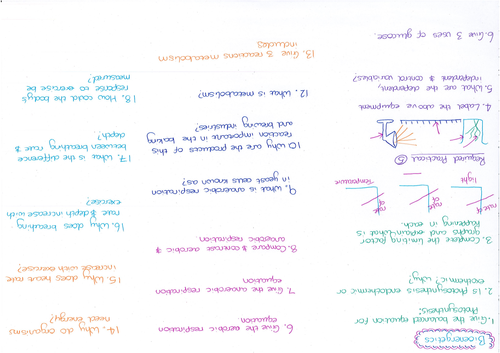 Bioenergetics
1. Give the balanced equation for
photosynthesis.
2. Is photosynthesis endothermic or
exothermic? Why?
3. Complete the limiting factor
graphs and explain what is
happening in each.
rate of
rate of
rate of
light
Temperature
Required Practical 5
4. Label the above equipment
5. What are the dependent,
independent & control variables?
6. Give 3 uses of glucose.
6. Give the aerobic respiration
equation
7. Give the anaerobic respiration
equation
8. Compare & contrast aerobic &
anaerobic respiration
9. What is anaerobic respiration
in yeast cells known as?
10. Why are the products of this
reaction important in the baking
and brewing industries?
12. What is metabolism?
13. Give 3 reactions metabolism
includes
14. Why do organisms
need energy?
15. Why does heart rate
increase with exercise?
16. Why does breathing
rate & depth increase with
exercise?
17. What is the difference
between breathing rate &
depth?
18. How could the body's
response to exercise be
measured?